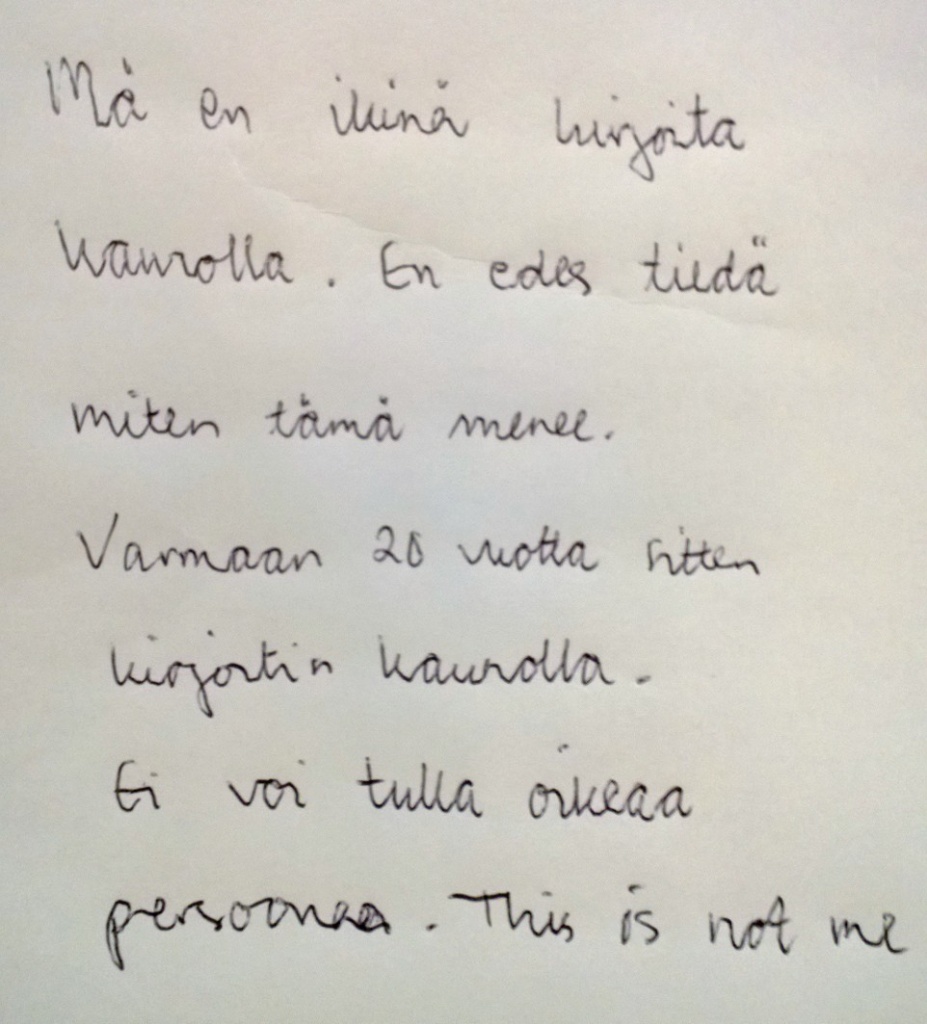 Mä en ikinä kirjoita
kaunolla. En edes tiedä
miten tämä menee.
Varmaan 20 vuotta sitten
kirjoitin kaunolla.
Ei voi tulla oikeaa
persoonaa. This is not me